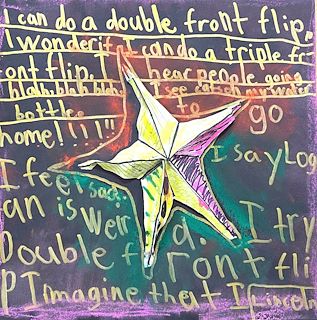 I can do a double front flip.
I wonder if I can do a triple fr
ont flip. I hear people going
blah, blah, blah. I see on my water
bottle. to go
home!!!! I say Log
I feel sad.
an is weird. I try
Double front fli
p I imagine that I